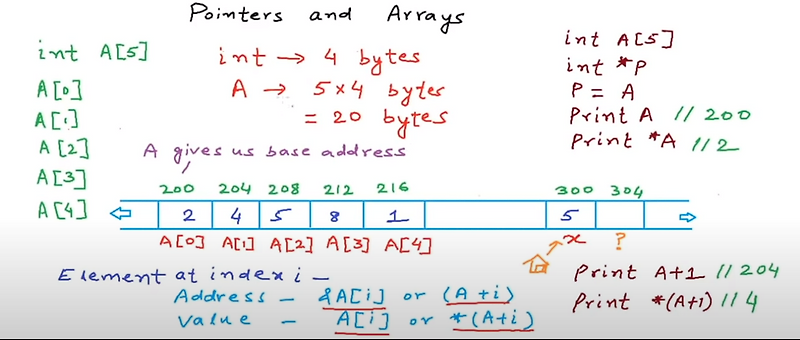 Pointers and Arrays
int A[5]
A[0]
A[1]
A[2]
A[3]
A[4]
int → 4 bytes
A → 5x4 bytes
= 20 bytes
int A[5]
int *P
P = A
Print A // 200
Print *A //2
A gives us base address
200 204 208 212 216 300 304
2 4 5 8 1 5
A[0] A[1] A[2] A[3] A[4] x ?
Element at index i –
Address – &A[i] or (A+i)
Value – A[i] or *(A+i)
Print A+1 // 204
Print *(A+1) // 4